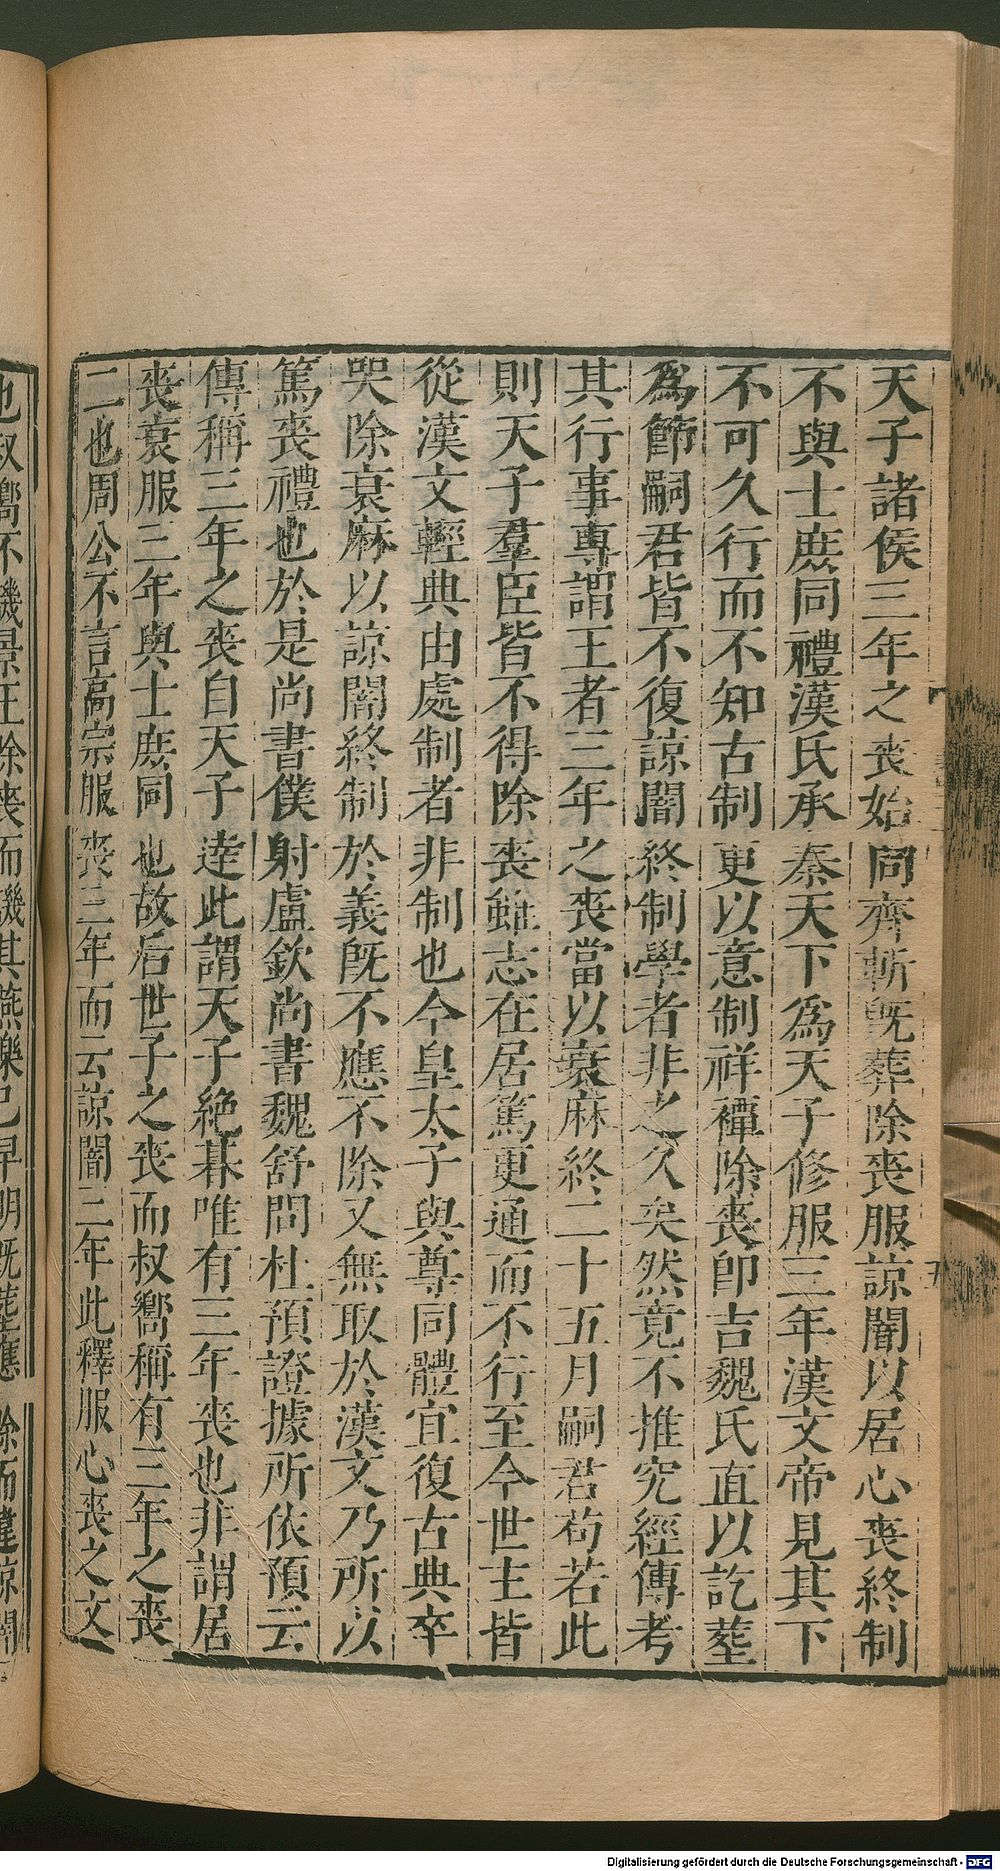 天子諸侯三年之喪始同齊斬旣葬除喪服諒闇以居心喪終制
不與士庶同禮漢氏承秦天下爲天子修服三年漢文帝見其下
不可久行而不知古制更以意制祥禫除喪卽吉魏氏直以訖葬
爲節嗣君皆不復諒闇終制學者非之久矣然竟不推究經傳考
其行事專謂王者三年之喪當以衰麻終二十五月嗣君苟若此
則天子羣臣皆不得除喪雖志在居篤更通而不行至今世主皆
從漢文輕典由處制者非制也今皇太子與尊同體宜復古典卒
哭除衰麻以諒闇終制於義旣不應不除又無取於漢文乃所以
篤喪禮也於是尚書僕射盧欽尚書魏舒問杜預證據所依預云
傳稱三年之喪自天子達此謂天子絶朞唯有三年喪也非謂居
喪衰服三年與士庶同也故后世子之喪而叔嚮稱有三年之喪
二也周公不言高宗服喪三年而云諒闇三年此釋服心喪之文
也叔嚮不譏景王除喪而譏其燕樂已早明旣葬應除而違諒闇
Digitalisierung gefördert durch die Deutsche Forschungsgemeinschaft - DFG